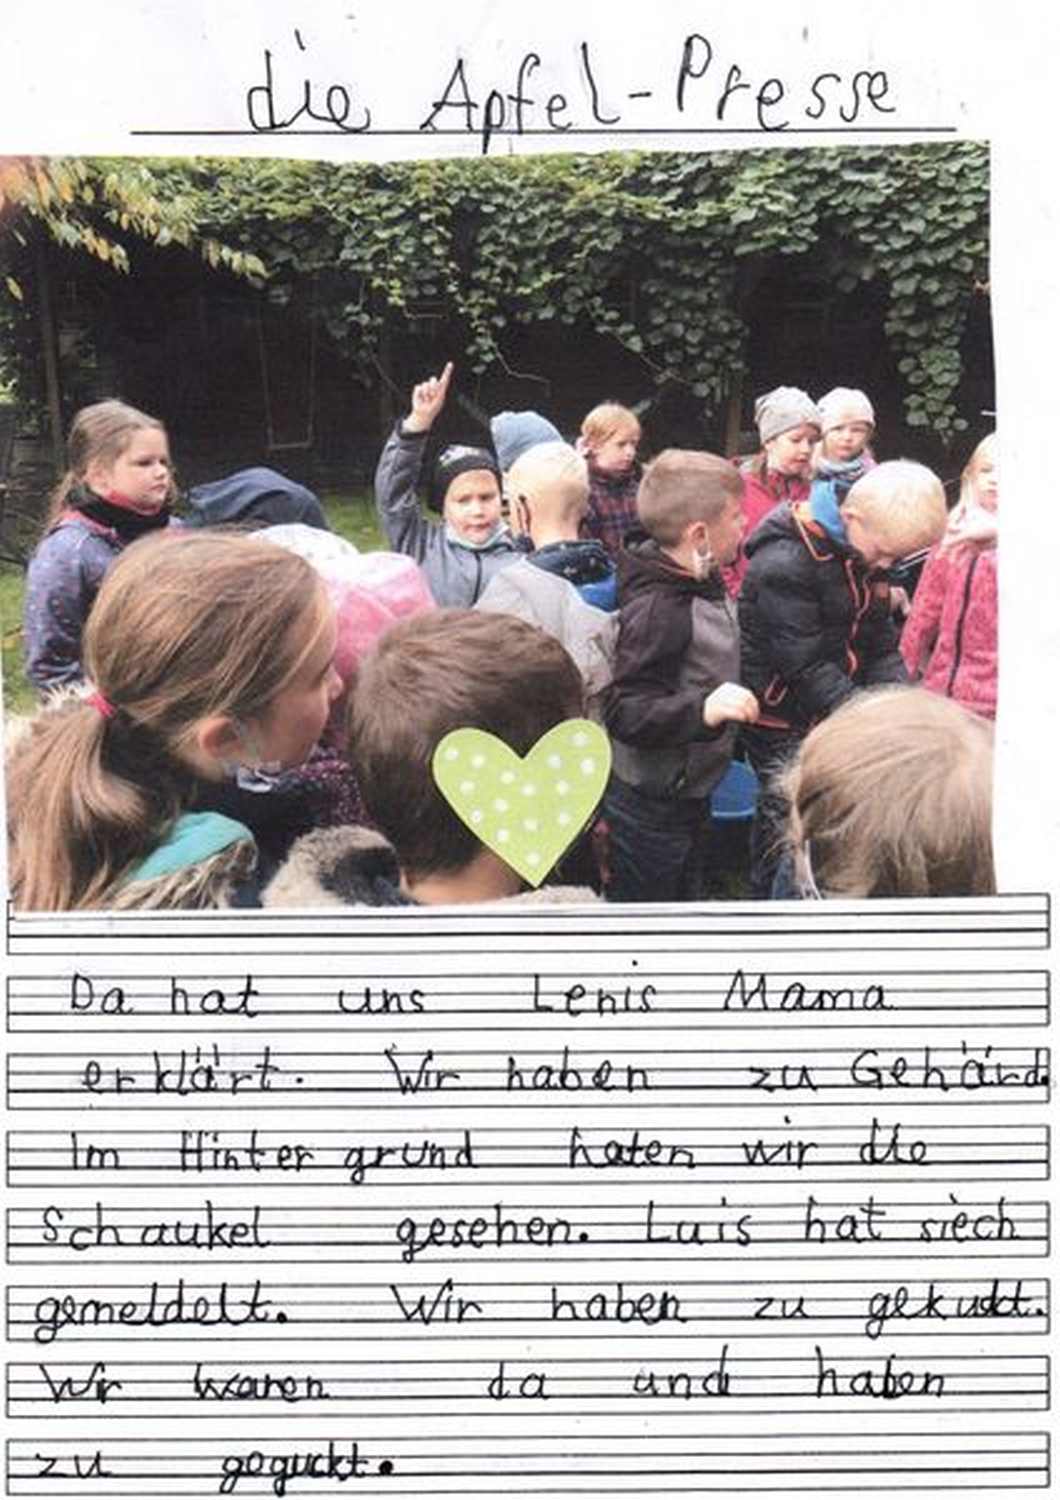 die Apfel-Presse
Da hat uns Lenis Mama
erklärt. Wir haben zu Gehärd.
Im Hintergrund haten wir die
Schaukel gesehen. Luis hat siech
gemeldelt. Wir haben zu gekuckt.
Wir waren da und haben
zu geguckt.